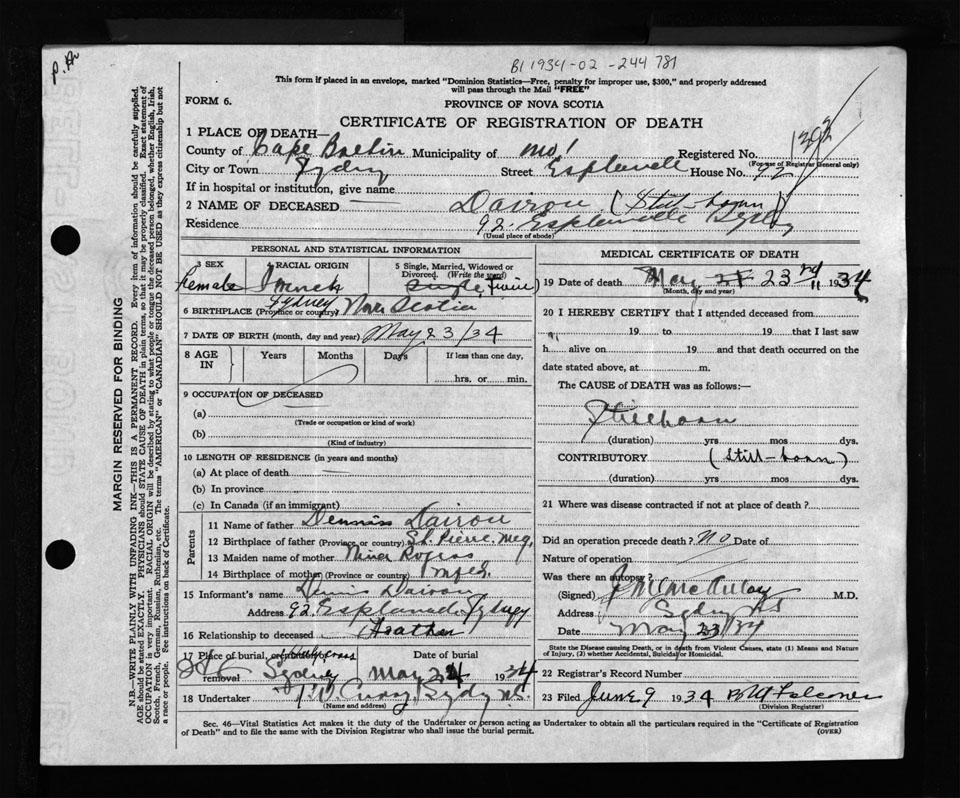 P. H.
B1 1934-02-244 781
This form if placed in an envelope, marked "Dominion Statistics—Free, penalty for improper use, $300," and properly addressed
will pass through the Mail "FREE"
FORM 6.
PROVINCE OF NOVA SCOTIA
CERTIFICATE OF REGISTRATION OF DEATH
1 PLACE OF DEATH—
County of Cape Breton Municipality of Registered No.
(For use of Registrar General only)
City or Town Sydney Street Esplanade House No. 92
If in hospital or institution, give name
2 NAME OF DECEASED — Dairou (Still-born)
Residence 92 Esplanade Sydney
(Usual place of abode)
PERSONAL AND STATISTICAL INFORMATION
3 SEX 4 RACIAL ORIGIN 5 Single, Married, Widowed or Divorced. (Write the word)
Female French Single (Twin)
6 BIRTHPLACE (Province or country) Sydney Nova Scotia
7 DATE OF BIRTH (month, day and year) May 23/34
8 AGE IN Years Months Days If less than one day, hrs. or min.
9 OCCUPATION OF DECEASED
(a)
(Trade or occupation or kind of work)
(b)
(Kind of industry)
10 LENGTH OF RESIDENCE (in years and months)
(a) At place of death —
(b) In province
(c) In Canada (if an immigrant)
Parents
11 Name of father Dennis Dairou
12 Birthplace of father (Province or country) St. Pierre Meq.
13 Maiden name of mother Nina
14 Birthplace of mother (Province or country) Nfld.
15 Informant's name Denis Dairou
Address 92 Esplanade Sydney
16 Relationship to deceased Father
17 Place of burial, cremation or removal Holy Cross Sydney Date of burial May 24 1934
18 Undertaker Curry, Sydney N.S.
(Name and address)
MEDICAL CERTIFICATE OF DEATH
19 Date of death May 23rd 1934
(Month, day and year)
20 I HEREBY CERTIFY that I attended deceased from
19 to 19 that I last saw
h alive on 19 and that death occurred on the
date stated above, at m.
The CAUSE of DEATH was as follows:—
Stillborn
(duration) yrs mos dys.
CONTRIBUTORY (Still-born)
(duration) yrs mos dys.
21 Where was disease contracted if not at place of death?
Did an operation precede death? No Date of
Nature of operation
Was there an autopsy?
(Signed) McAulay M.D.
Address Sydney NS
Date May 23/34
State the Disease causing Death, or in death from Violent Causes, state (1) Means and Nature of Injury, (2) whether Accidental, Suicidal or Homicidal.
22 Registrar's Record Number
23 Filed June 9 1934 Falconer
(Division Registrar)
Sec. 46—Vital Statistics Act makes it the duty of the Undertaker or person acting as Undertaker to obtain all the particulars required in the "Certificate of Registration
of Death" and to file the same with the Division Registrar who shall issue the burial permit.
(OVER)
MARGIN RESERVED FOR BINDING
N.B.—WRITE PLAINLY WITH UNFADING INK—THIS IS A PERMANENT RECORD. Every item of information should be carefully supplied.
AGE should be stated EXACTLY. PHYSICIANS should STATE CAUSE OF DEATH in plain terms, so that it may be properly classified. Exact statement of
OCCUPATION is very important. RACIAL ORIGIN will be described by stating to what people or tongue the deceased person belonged, whether English, Irish,
Scotch, French, German, Russian, Ruthenian, etc. The terms "AMERICAN" or "CANADIAN" SHOULD NOT BE USED as they express citizenship but not
a race or people. See instructions on back of Certificate.